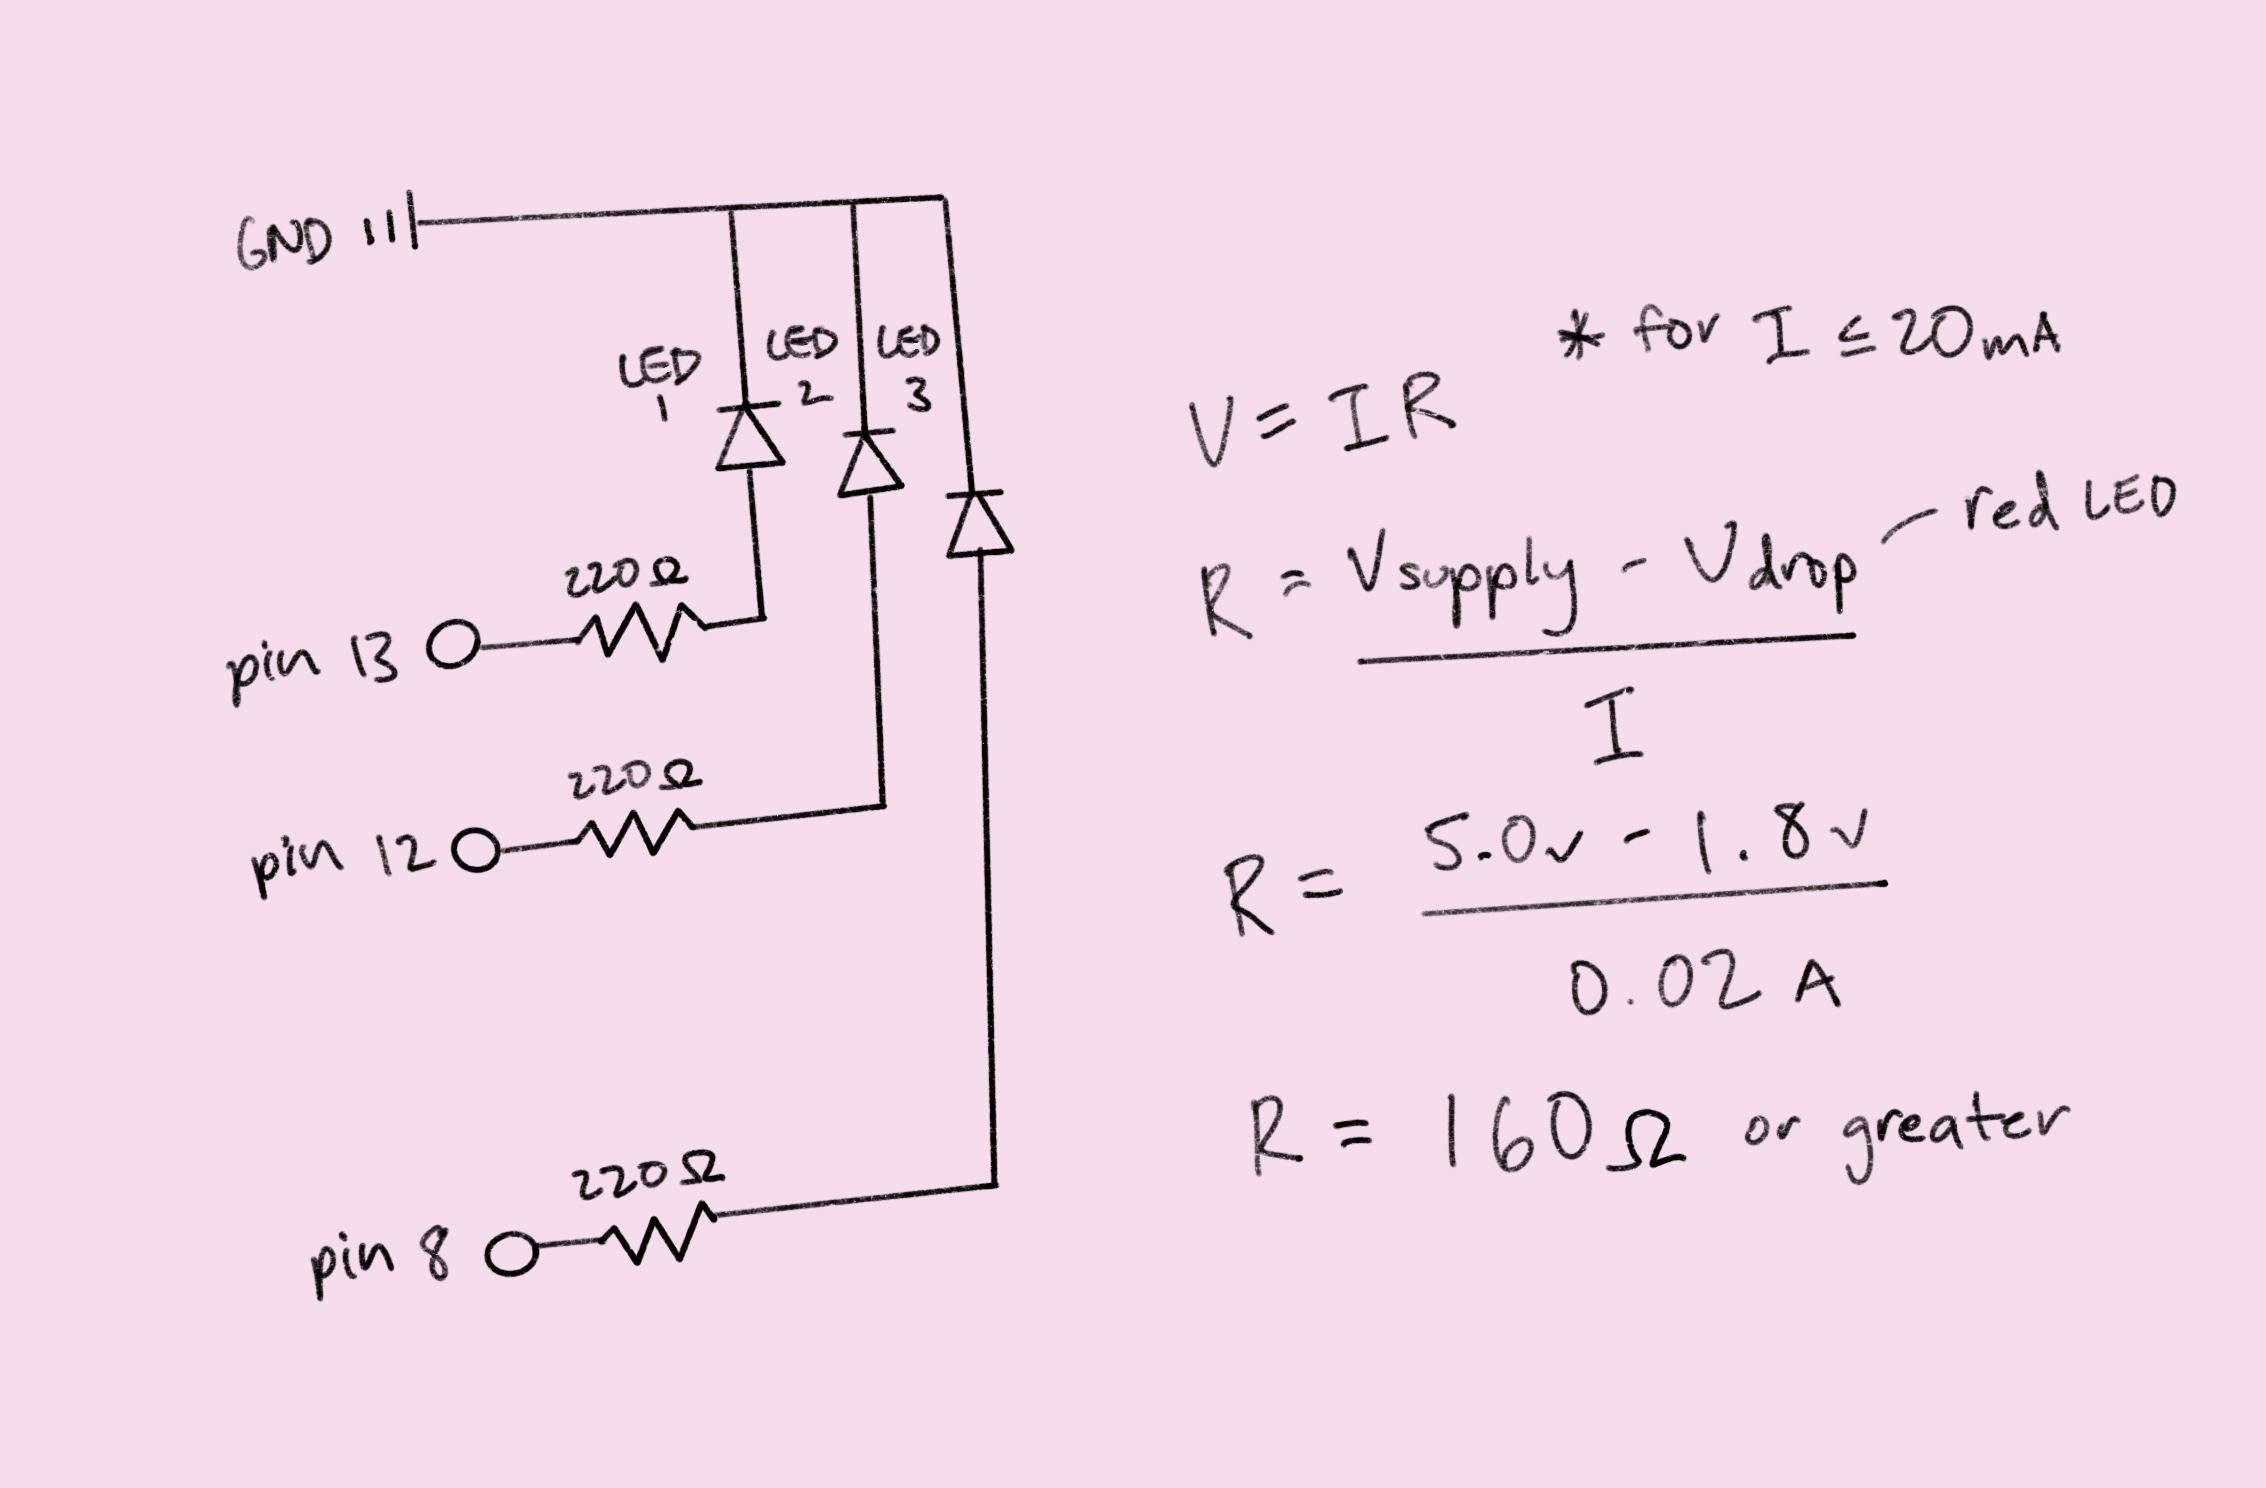 GND
LED 1
LED 2
LED 3
220Ω
pin 13
220Ω
pin 12
220Ω
pin 8
* for I ≤ 20mA
V = IR
R = Vsupply - Vdrop
I
red LED
R = 5.0v - 1.8v
0.02 A
R = 160Ω or greater